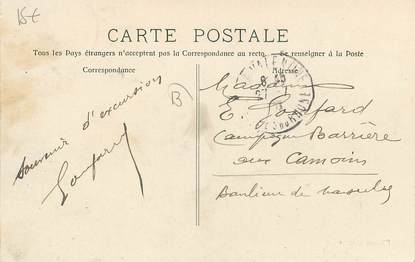 15€
CARTE POSTALE
Tous les Pays étrangers n'acceptent pas la Correspondance au recto. Se renseigner à la Poste
Correspondance
Adresse
Souvenir d'excursion
B
Madame
E.
Campagne Barrière
aux Camoins
Banlieue de Marseille